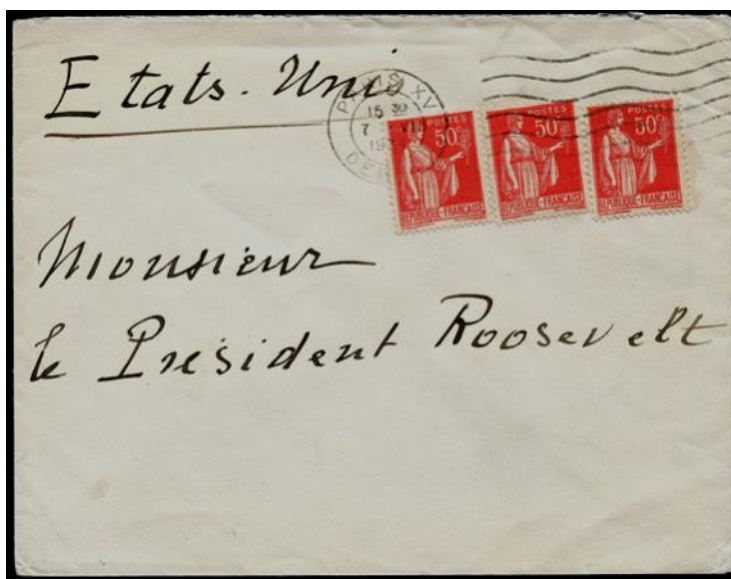 Etats-Unis
PARIS XV
15 30
7 VII
19
POSTES
50c
REPUBLIQUE-FRANÇAISE
POSTES
50c
REPUBLIQUE-FRANÇAISE
POSTES
50c
REPUBLIQUE-FRANÇAISE
Monsieur
le Président Roosevelt